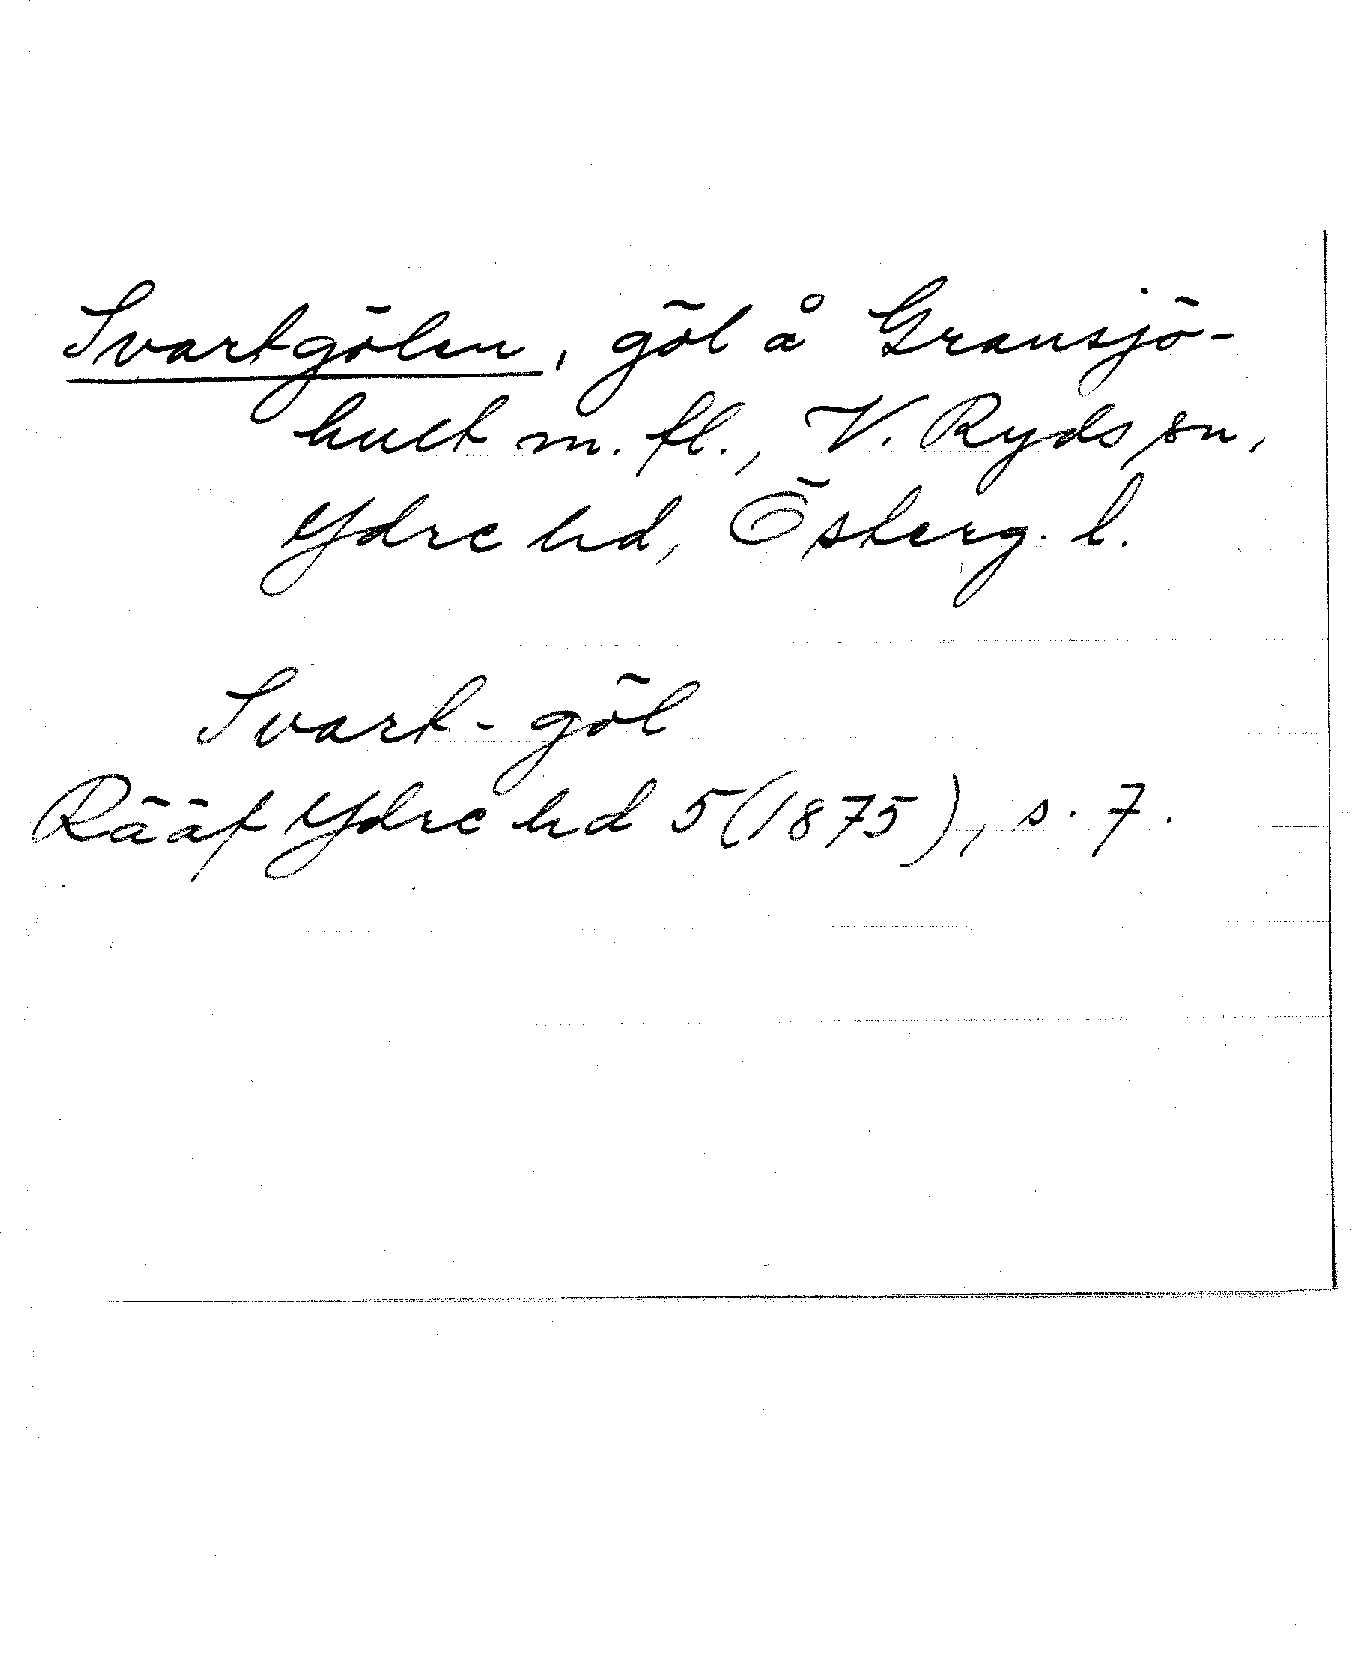 Svartgölen, göl å Gransjö-
hult m. fl., V. Ryds sn,
Ydre hd, Österg. l.
Svart-göl
Rääf Ydre hd 5 (1875), s. 7.